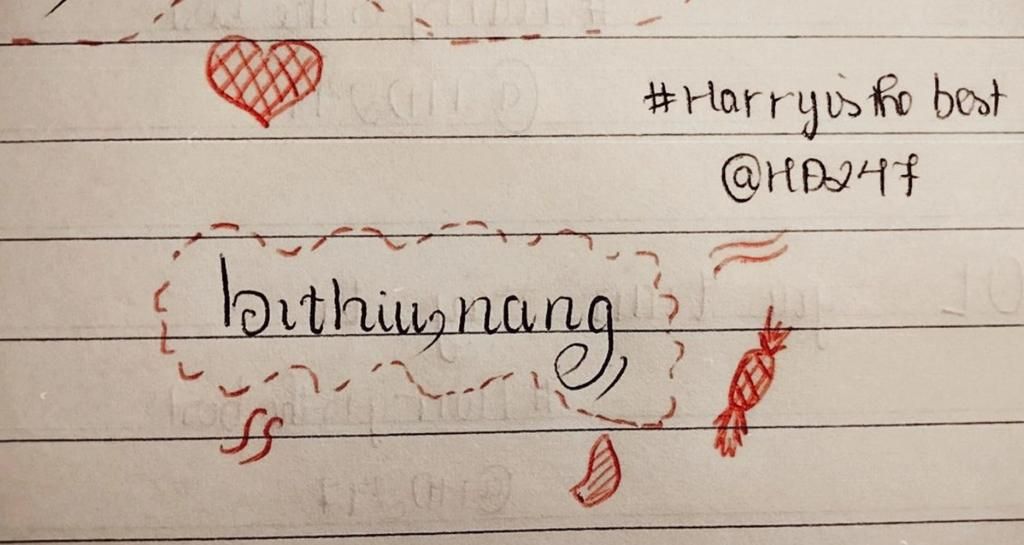 #Harry is the best
@HD247
bithiu, nang